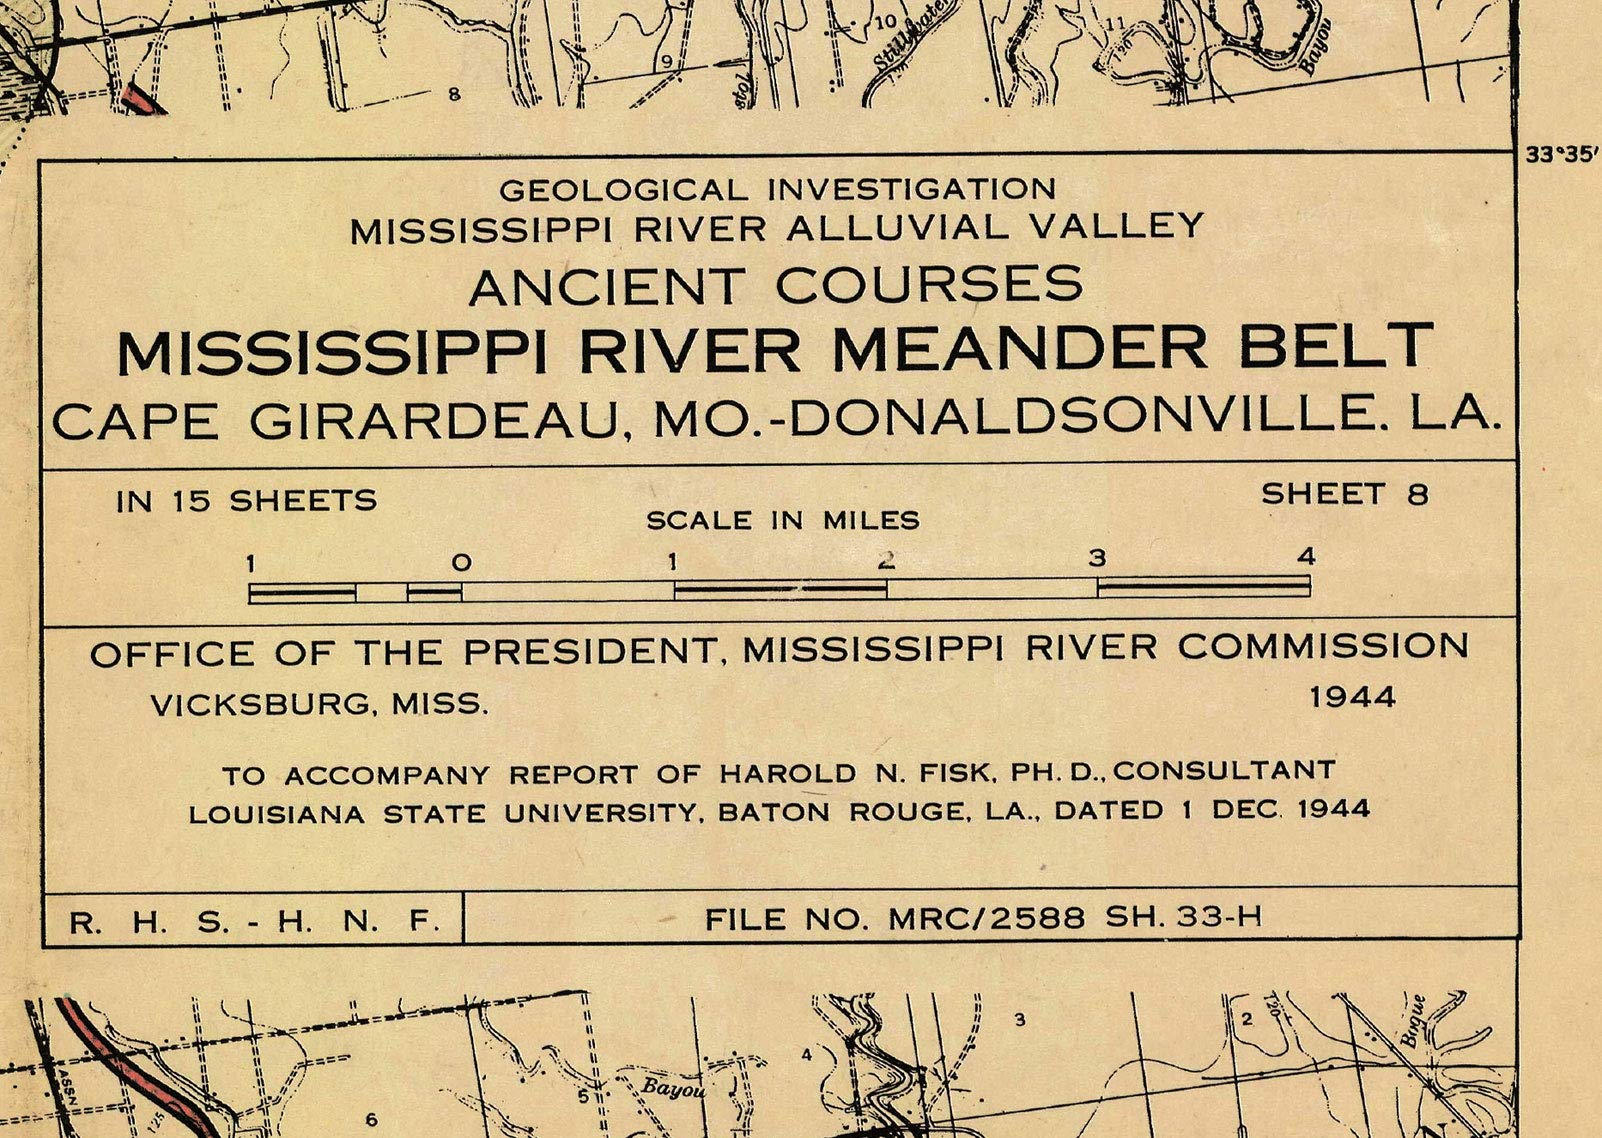 10
Stillwater
11
120
Bayou
9
8
33°35'
GEOLOGICAL INVESTIGATION
MISSISSIPPI RIVER ALLUVIAL VALLEY
ANCIENT COURSES
MISSISSIPPI RIVER MEANDER BELT
CAPE GIRARDEAU, MO.-DONALDSONVILLE. LA.
IN 15 SHEETS
SHEET 8
SCALE IN MILES
1 0 1 2 3 4
OFFICE OF THE PRESIDENT, MISSISSIPPI RIVER COMMISSION
VICKSBURG, MISS. 1944
TO ACCOMPANY REPORT OF HAROLD N. FISK, PH. D., CONSULTANT
LOUISIANA STATE UNIVERSITY, BATON ROUGE, LA., DATED 1 DEC. 1944
R. H. S. - H. N. F.
FILE NO. MRC/2588 SH. 33-H
3
2
120
Bogue
4
ASSN
Bayou
5
6
125